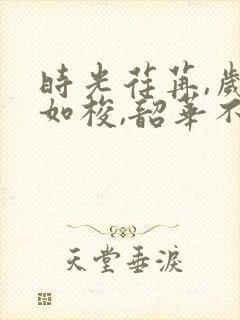 時光荏苒,歲
如梭,韶華不
天堂垂淚